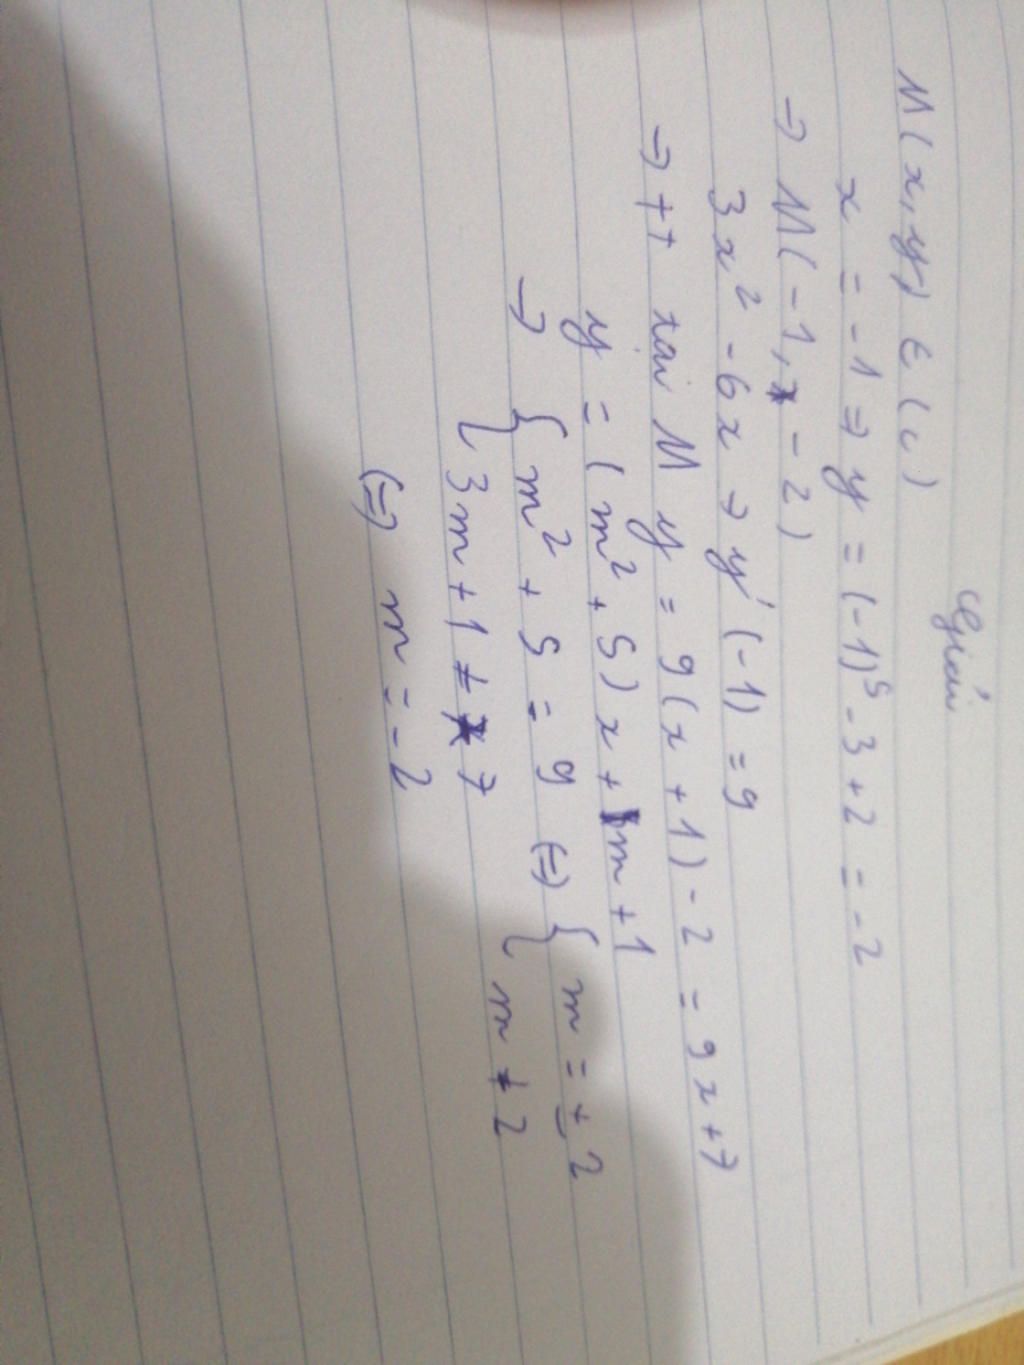 Giải
M(x,y) ∈ (C)
x = -1 ⇒ y = (-1)³ - 3 + 2 = -2
⇒ M(-1, -2)
3x² - 6x ⇒ y'(-1) = 9
⇒ tt tại M y = 9(x + 1) - 2 = 9x + 7
y = (m² + 5)x + 3m + 1
⇒ { m² + 5 = 9 (⇒) { m = ± 2
3m + 1 ≠ 7 m ≠ 2
(⇒) m = -2